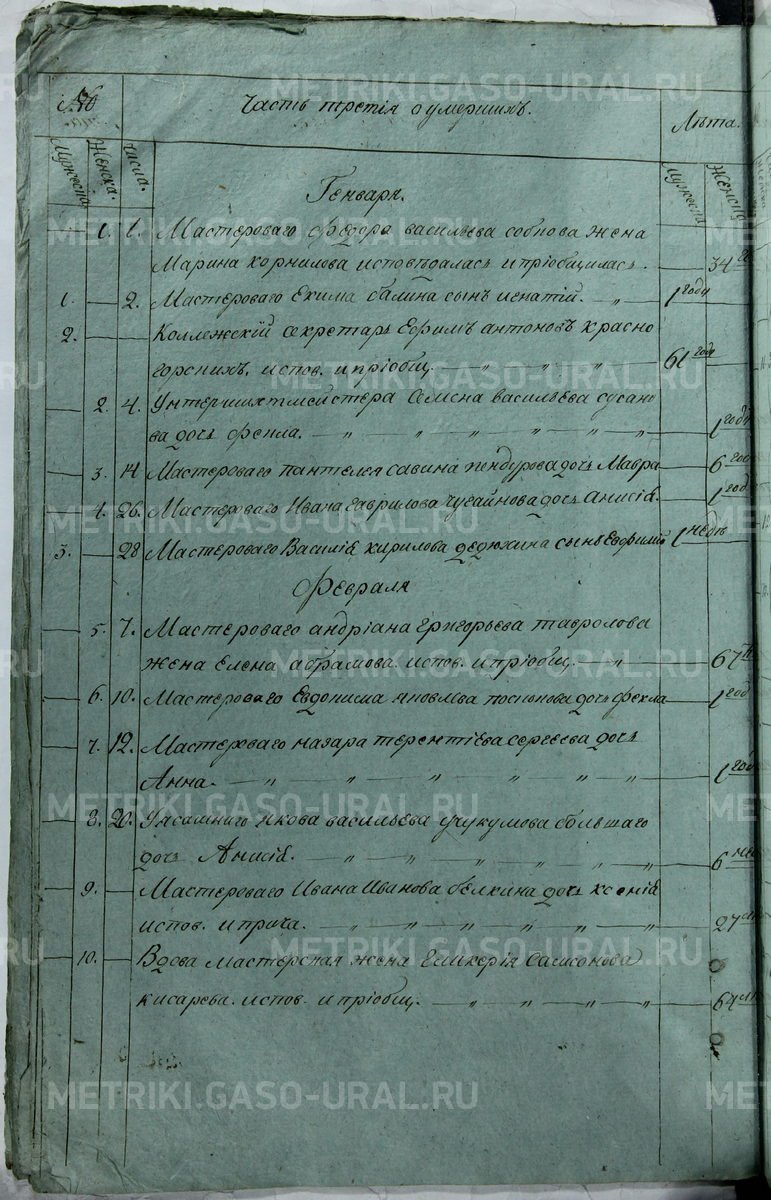 №
Часть третія о умершихъ.
Лѣта.
Мужеска. Женска. Числа.
Мужеска Женска
Генваря.
1. 1. Мастероваго Федора васильева собнова жена
Марина корнилова исповѣдалась и пріобщилась. 34
1. — 2. Мастероваго Екима балина сынъ игнатій. — „ — 1 годъ
2. — Коллежскій секретарь Ефимъ антоновъ красно
горскихъ. испов. и пріобщ. — „ — „ — „ — 61 годъ
— 2. 4. Унтершихтмейстера Семена васильева сусано
ва дочь Фекла. — „ — „ — „ — „ — „ — 1 годъ
— 3. 14 Мастероваго пантелея савина дочь Мавра — 6
— 4. 26. Мастероваго Ивана гаврилова чугайнова дочь Анисія. — 1 год
3. — 28 Мастероваго Василія кирилова дедюхина сынъ Евфимій 1 недѣ
Февраля
— 5. 7. Мастероваго андріана григорьева
жена Елена абрамова. испов. и пріобщ. — „ — 67
— 6. 10. Мастероваго Евдокима яковлева дочь фекла — 1 год
— 7. 12. Мастероваго назара терентіева сергеева дочь
Анна. — „ — „ — „ — „ — „ — 1 год
— 8. 20. якова васильева учукумова большаго
дочь Анисія. — „ — „ — „ — „ — „ — 6 нед
— 9. — Мастероваго Ивана Иванова белкина дочь ксенія
испов. и прича. — „ — „ — „ — „ — „ — 27
— 10. — Вдова мастерская жена Гликерія Самсонова
кисарева. испов. и пріобщ. — „ — „ — „ — 64
METRIKI.GASO-URAL.RU